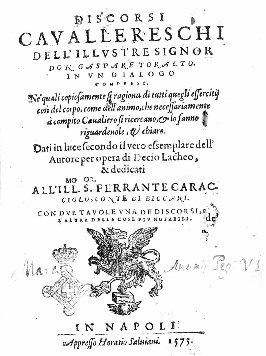 DISCORSI
CAVALLERESCHI
DELL'ILLVSTRE SIGNOR
DON GASPARE TORALTO,
IN VN DIALOGO
COMPRESI.
Ne' quali copiosamente si ragiona di tutti quegli essercitij
cosi del corpo, come dell'animo, che necessariamente
à compito Caualiero si ricercano, & lo fanno
riguardeuole, & chiaro.
Dati in luce secondo il vero essemplare dell'
Autore per opera di Decio Lacheo,
& dedicati
MOL OR.
ALL'ILL. S. FERRANTE CARAC-
CIOLO, CONTE DI BICCARI.
CON DVE TAVOLE VNA DE DISCORSI, E
L'ALTRA DELLE COSE PIV NOTABILI.
IN NAPOLI
Appresso Horatio Saluiani. 1573.